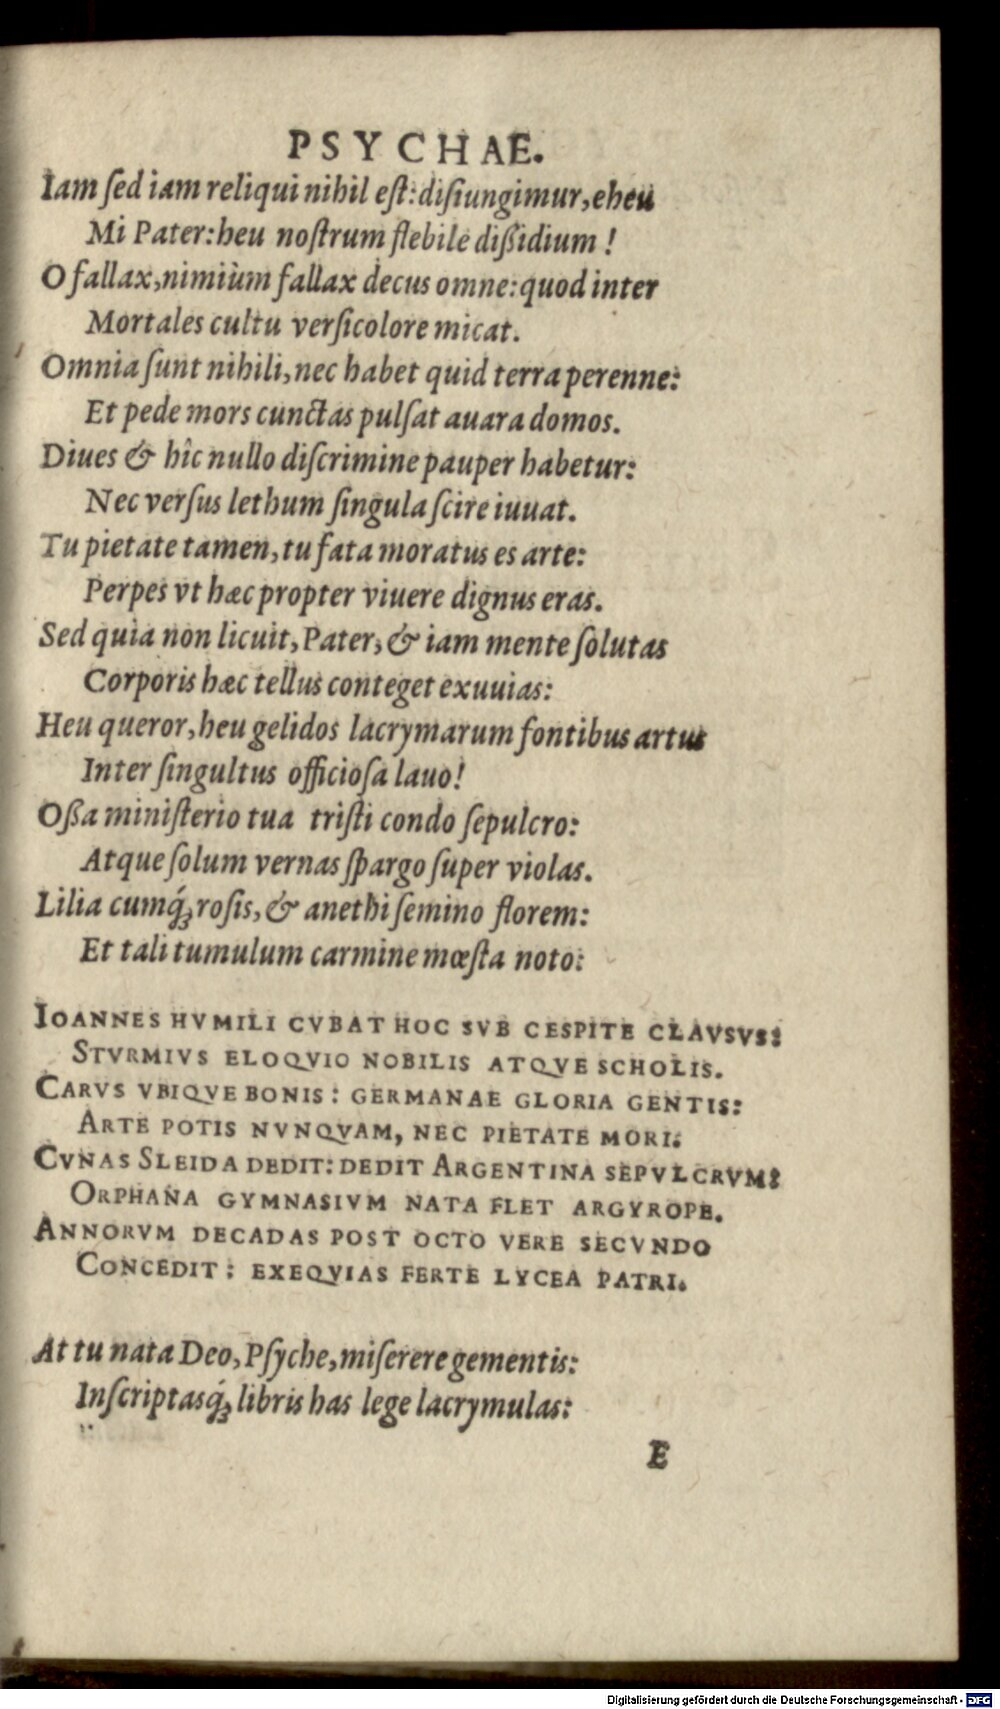 PSYCHAE.
Iam ſed iam reliqui nihil eſt: diſiungimur, eheu
Mi Pater: heu noſtrum flebile dißidium!
O fallax, nimiùm fallax decus omne: quod inter
Mortales cultu verſicolore micat.
Omnia ſunt nihili, nec habet quid terra perenne:
Et pede mors cunctas pulſat auara domos.
Diues & hîc nullo diſcrimine pauper habetur:
Nec verſus lethum ſingula ſcire iuuat.
Tu pietate tamen, tu fata moratus es arte:
Perpes vt hæc propter viuere dignus eras.
Sed quia non licuit, Pater, & iam mente ſolutas
Corporis hæc tellus conteget exuuias:
Heu queror, heu gelidos lacrymarum fontibus artus
Inter ſingultus officioſa lauo!
Oßa miniſterio tua triſti condo ſepulcro:
Atque ſolum vernas ſpargo ſuper violas.
Lilia cumq́ꝫ roſis, & anethi ſemino florem:
Et tali tumulum carmine mœſta noto:
IOANNES HVMILI CVBAT HOC SVB CESPITE CLAVSVS:
STVRMIVS ELOQVIO NOBILIS ATQVE SCHOLIS.
CARVS VBIQVE BONIS: GERMANAE GLORIA GENTIS:
ARTE POTIS NVNQVAM, NEC PIETATE MORI.
CVNAS SLEIDA DEDIT: DEDIT ARGENTINA SEPVLCRVM:
ORPHANA GYMNASIVM NATA FLET ARGYROPE.
ANNORVM DECADAS POST OCTO VERE SECVNDO
CONCEDIT: EXEQVIAS FERTE LYCEA PATRI.
At tu nata Deo, Pſyche, miſerere gementis:
Inſcriptasq́ꝫ libris has lege lacrymulas:
E
Digitalisierung gefördert durch die Deutsche Forschungsgemeinschaft - DFG